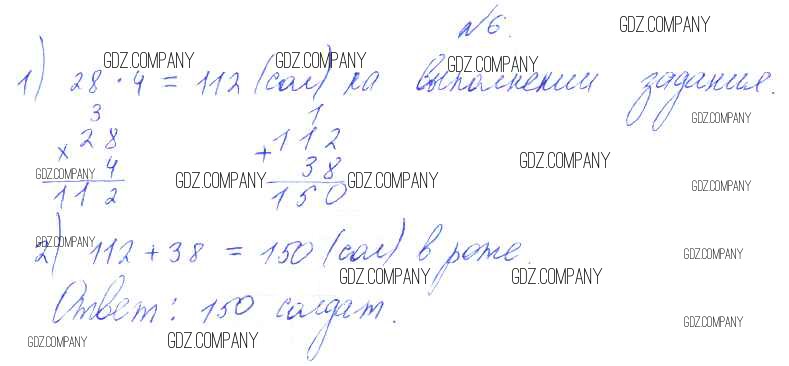 №6.
GDZ.COMPANY
GDZ.COMPANY GDZ.COMPANY GDZ.COMPANY
1) 28 · 4 = 112 (сол) на выполнении задания.
3 1
GDZ.COMPANY
× 28 + 112
4 38
GDZ.COMPANY
GDZ.COMPANY GDZ.COMPANY GDZ.COMPANY GDZ.COMPANY
112 150
GDZ.COMPANY
2) 112 + 38 = 150 (сол) в роте.
GDZ.COMPANY
GDZ.COMPANY GDZ.COMPANY
Ответ: 150 солдат.
GDZ.COMPANY
GDZ.COMPANY GDZ.COMPANY